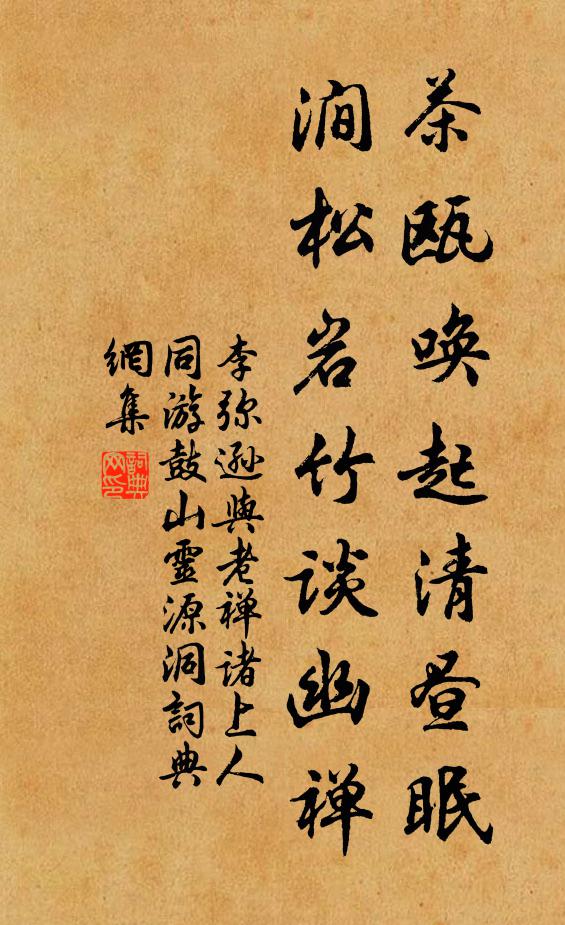 茶瓯唤起清昼眠
涧松岩竹谈幽禅
李弥逊與老禅诸上人
同游鼓山靈源洞詞典
網集
詞典
网印